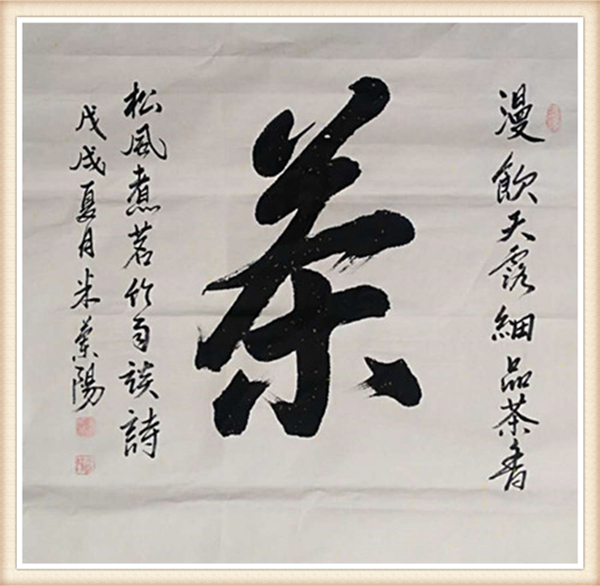 漫飲天露細品茶香
茶
松風煮茗竹雨談詩
戊戌夏月米蘭陽